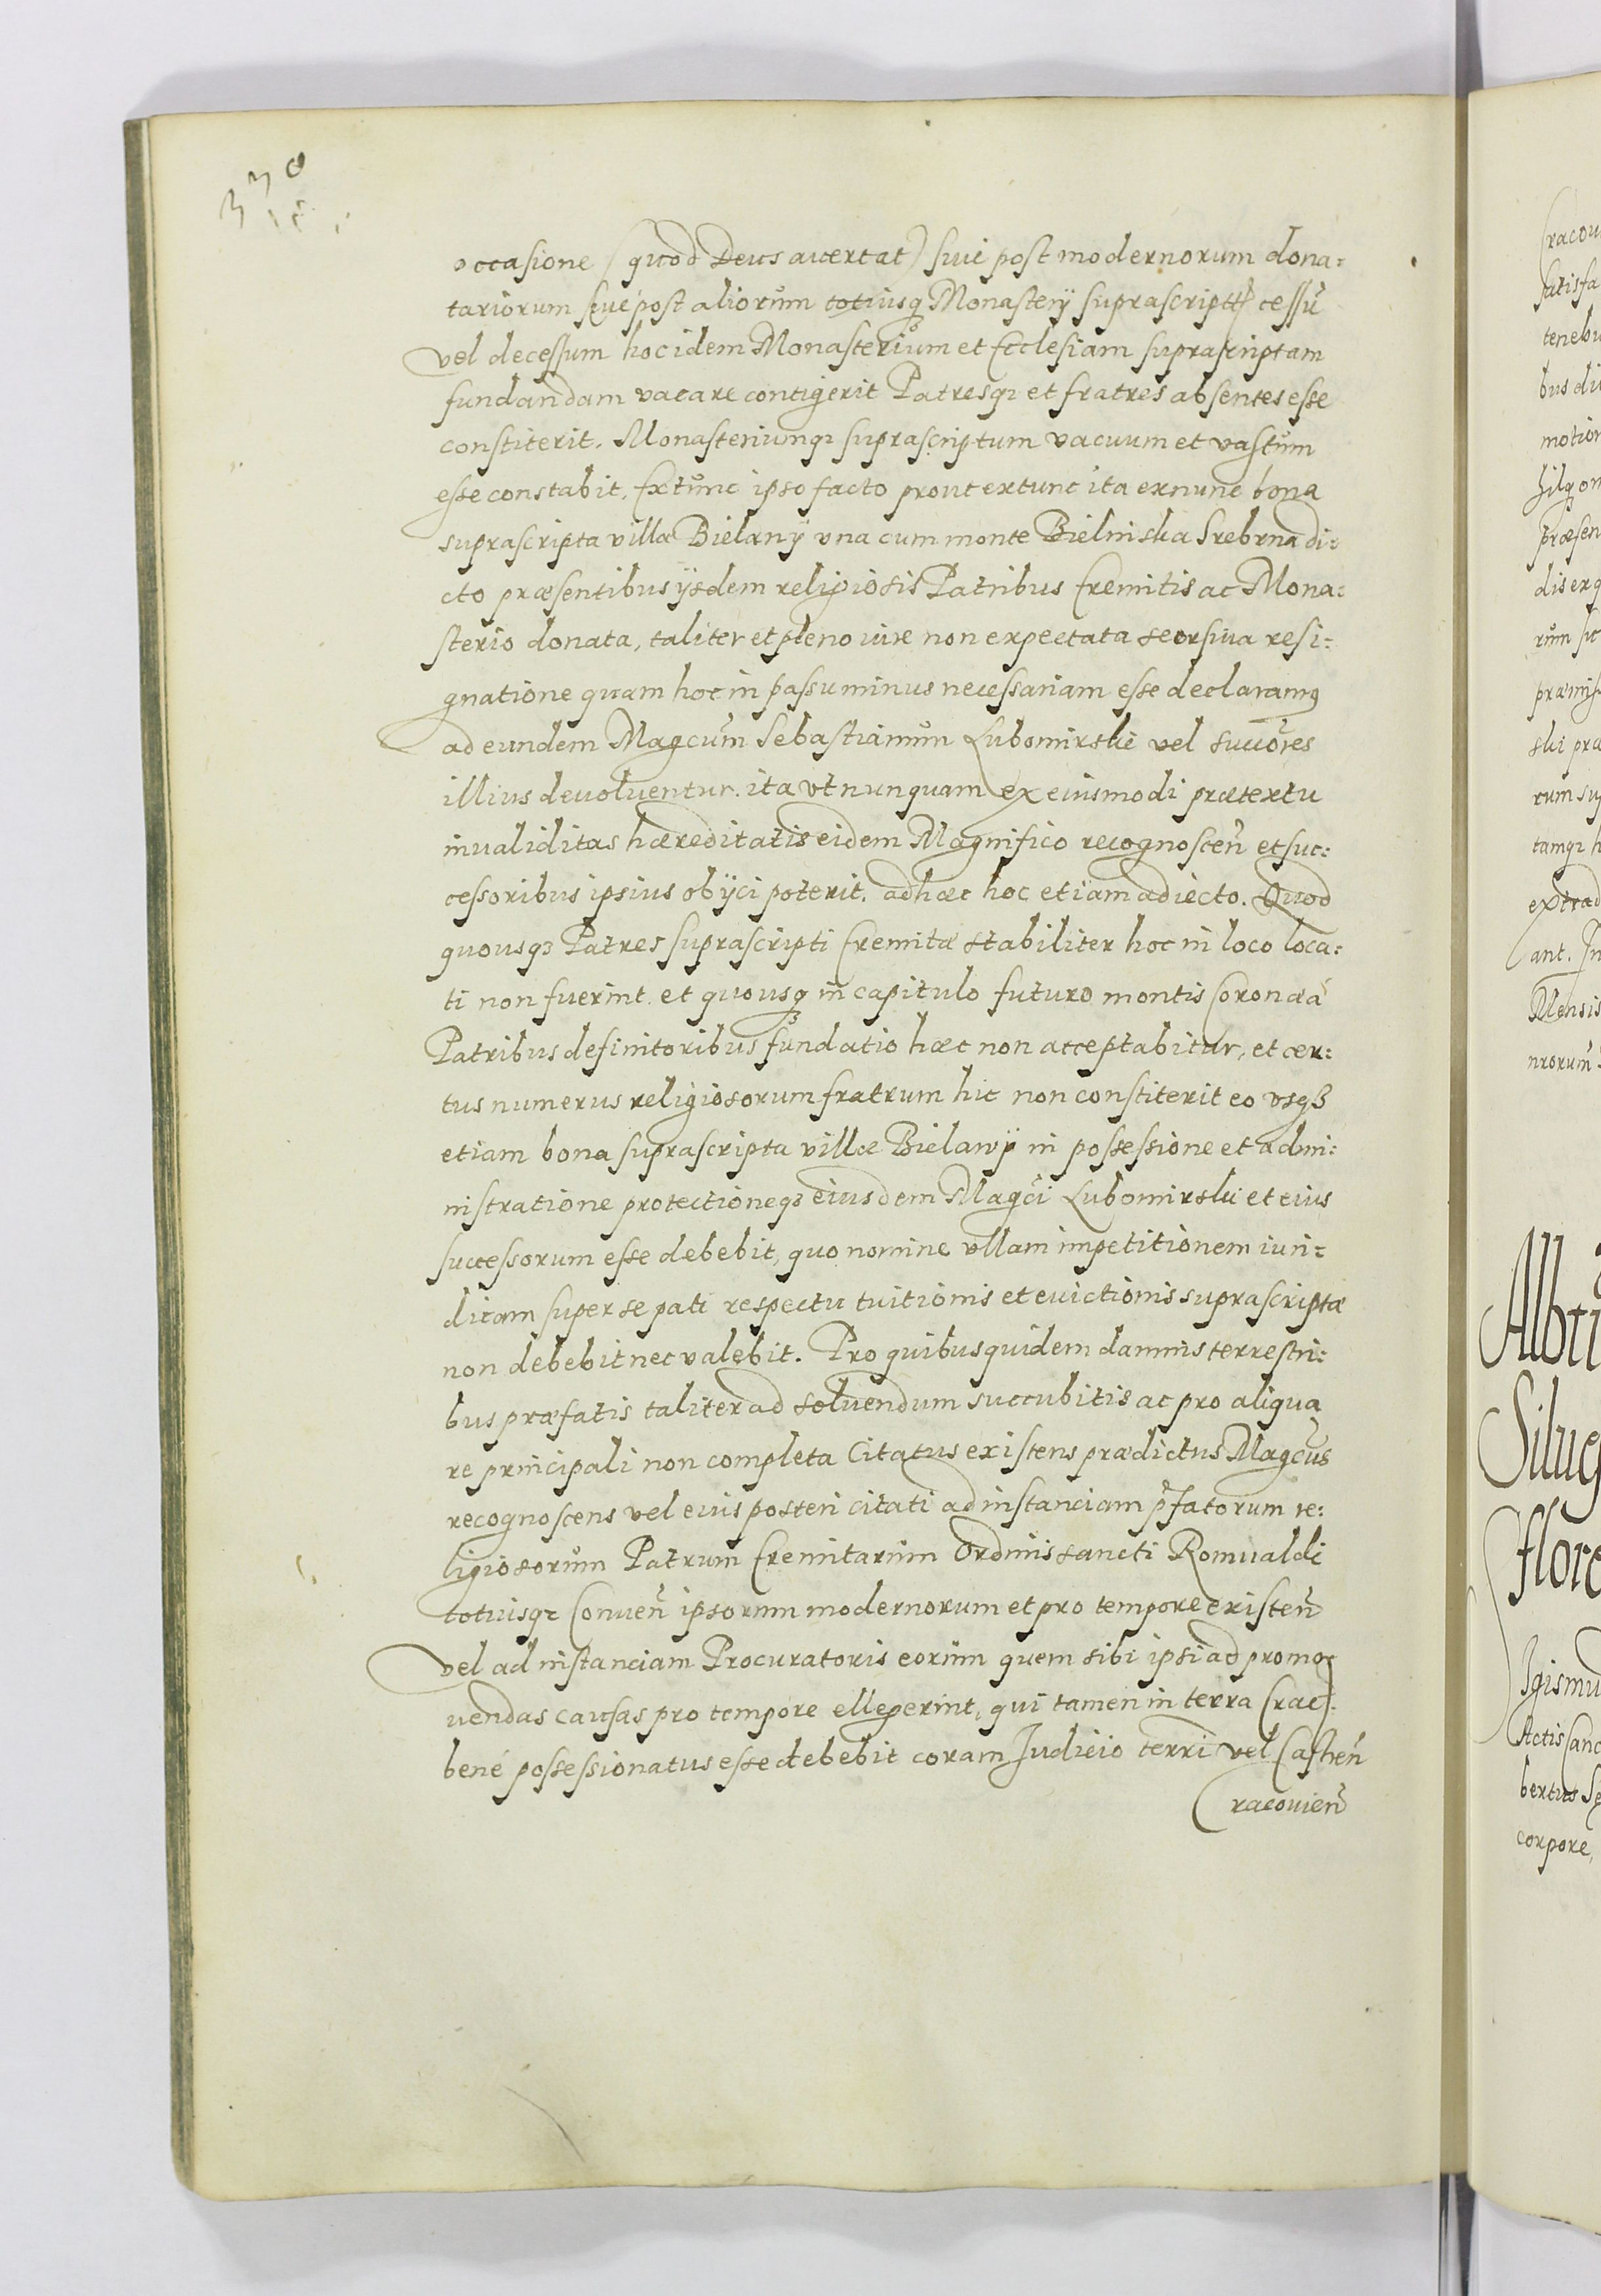 330
occasione (quod Deus auertat) siue post modernorum dona:
tariorum siue post aliorum totiusq Monasterÿ suprascripti cessu
vel decessum hoc idem Monasterium et Ecclesiam suprascriptam
fundandam vacare contigerit Patresqz et fratres absentes esse
constiterit. Monasteriumqz suprascriptum vacuum et vastum
esse constabit. Extunc ipso facto prout extunc ita exnunc bona
suprascripta villæ Bielanÿ vna cum monte Bielniska Srebrna di:
cto præsentibus ÿsdem religiosis Patribus Eremitis ac Mona:
sterio donata, taliter et pleno iure non expectata seorsiua resi:
gnatione quam hoc in passu minus necessariam esse declaramus
ad eundem Magcum Sebastianum Lubomirski vel succores
illius deuoluentur. ita vt nunquam ex eiusmodi prætextu
inualiditas hæreditatis eidem Magnifico recognoscen et suc:
cessoribus ipsius obÿci poterit. adhæc hoc etiam adiecto. Quod
quousqz Patres suprascripti Eremitæ stabiliter hoc in loco loca:
ti non fuerint. et quousqz in capitulo futuro montis Coronæ á
Patribus definitoribus fundatio hæc non acceptabitur, et cer:
tus numerus religiosorum fratrum hic non constiterit eo vsqz
etiam bona suprascripta villæ Bielanÿ in possessione et admi:
nistratione protectioneqz eiusdem Magci Lubomirski et eius
successorum esse debebit, quo nomine vllam impetitionem iuri:
dicam super se pati respectu tuitionis et euictionis suprascriptæ
non debebit nec valebit. Pro quibus quidem damnis terrestri:
bus præfatis taliter ad soluendum succubitis ac pro aliqua
re principali non completa Citatus existens prædictus Magcus
recognoscens vel eius posteri citati ad instanciam pfatorum re:
ligiosorum Patrum Eremitarum Ordinis sancti Romualdi
totiusqz Conuen ipsorum modernorum et pro tempore existen
vel ad instanciam Procuratoris eorum quem sibi ipsi ad promo:
uendas causas pro tempore ellegerint, qui tamen in terra Crac:
bené possessionatus esse debebit coram Judicio terri vel Castren
Cracouien